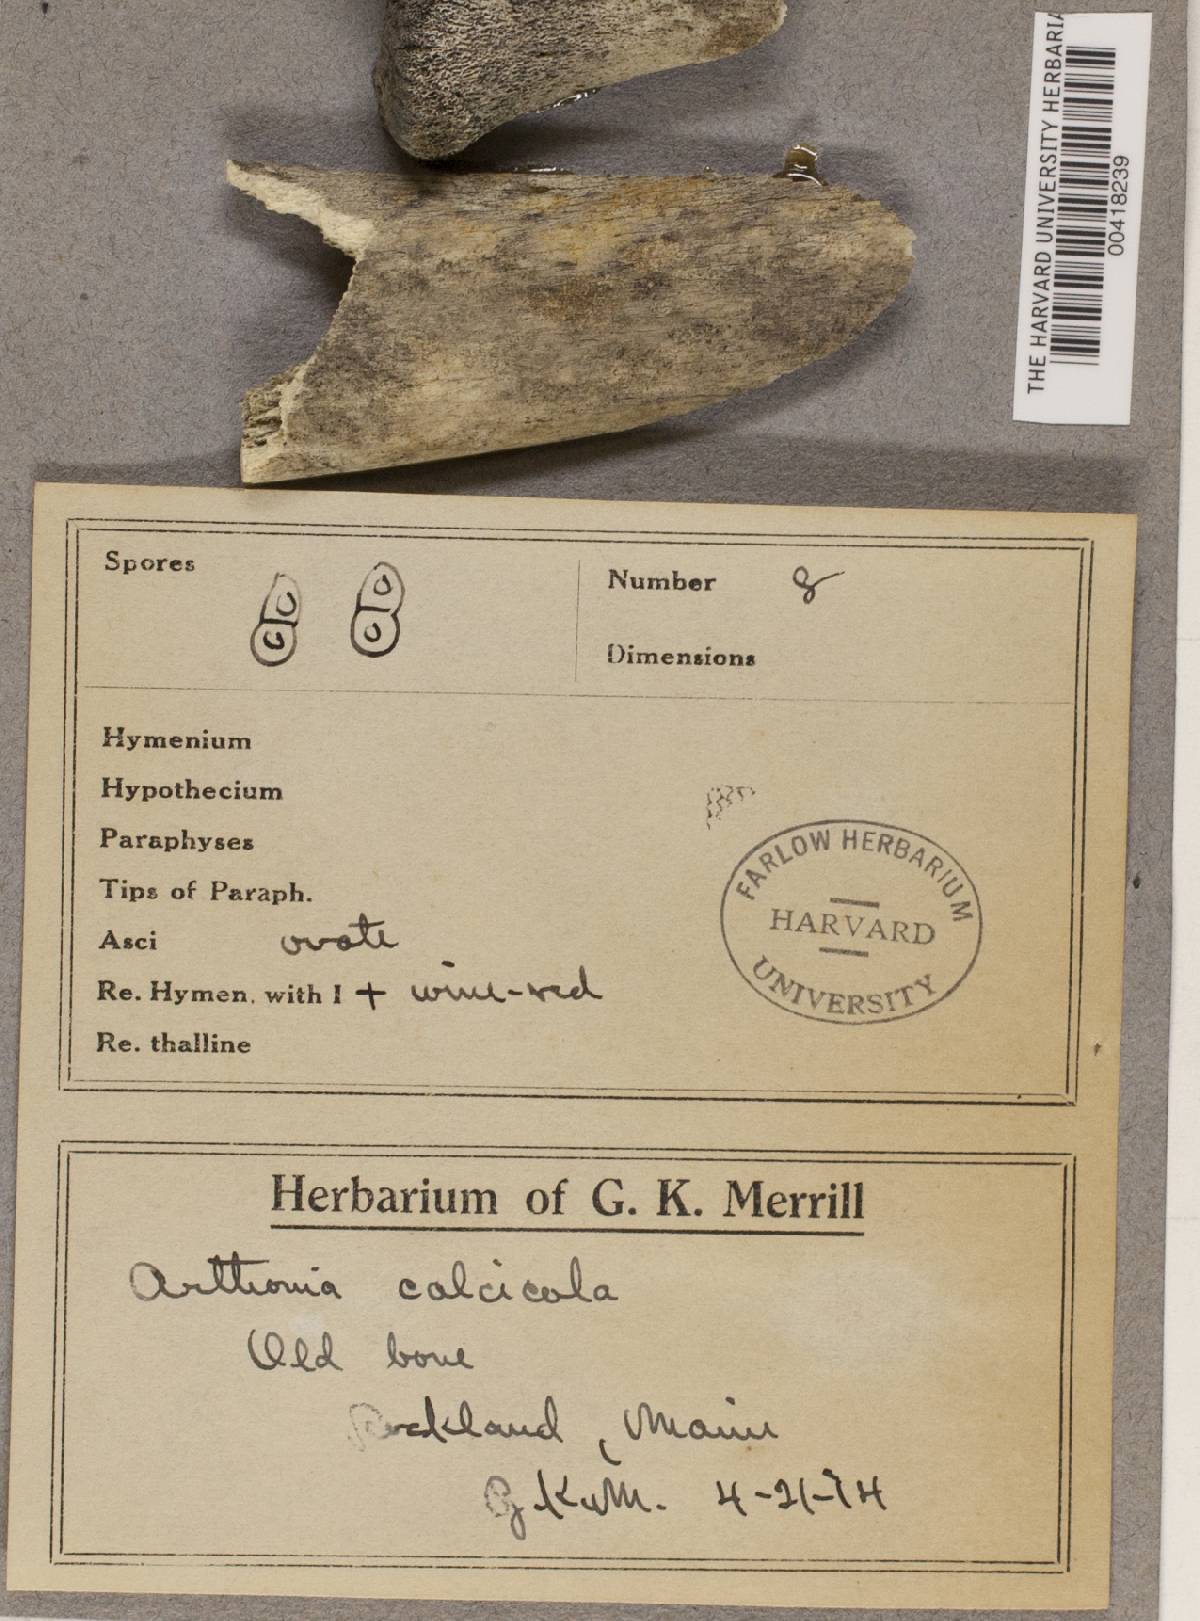 THE HARVARD UNIVERSITY HERBARIA
00418239
Spores
Number 8
Dimensions
Hymenium
Hypothecium
Paraphyses
Tips of Paraph.
Asci ovate
Re. Hymen. with I + wine-red
Re. thalline
FARLOW HERBARIUM
HARVARD
UNIVERSITY
Herbarium of G. K. Merrill
Arthonia calcicola
Old bone
Rockland, Maine
G.K.M. 4-21-14